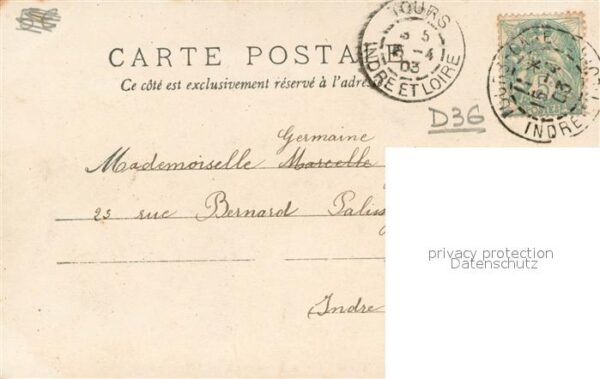 TOURS
5 5
15 -4
03
INDRE ET LOIRE
CARTE POSTALE
Ce côté est exclusivement réservé à l'adres
D36
5
03
INDRE
Germaine
Mademoiselle Marcelle
25 rue Bernard Paliss
Indre
privacy protection
Datenschutz